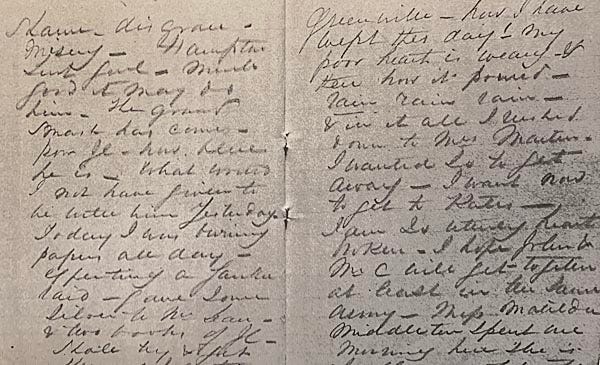 Shame - disgrace -
Misery - Hampton
Lieut Genl - Much
good it may do
him - The grand
Smash has come -
poor JC - how blue
he is - What would
I not have given to
be with him Yesterday
Today I was burning
papers all day -
expecting a Yankee
raid - gave some
silver to Mr
& two books of JC -
Greenville - how I have
wept this day! My
poor heart is weary - &
then how it poured -
rain rain rain -
& in it all I rushed
down to Mrs Martin -
I wanted so to get
away - I want now
to get to Kates -
I am so utterly heart
broken - I hope John &
Mr C will get together
at least in the same
Army - Miss Matilda
Middleton spent one
Morning here She is